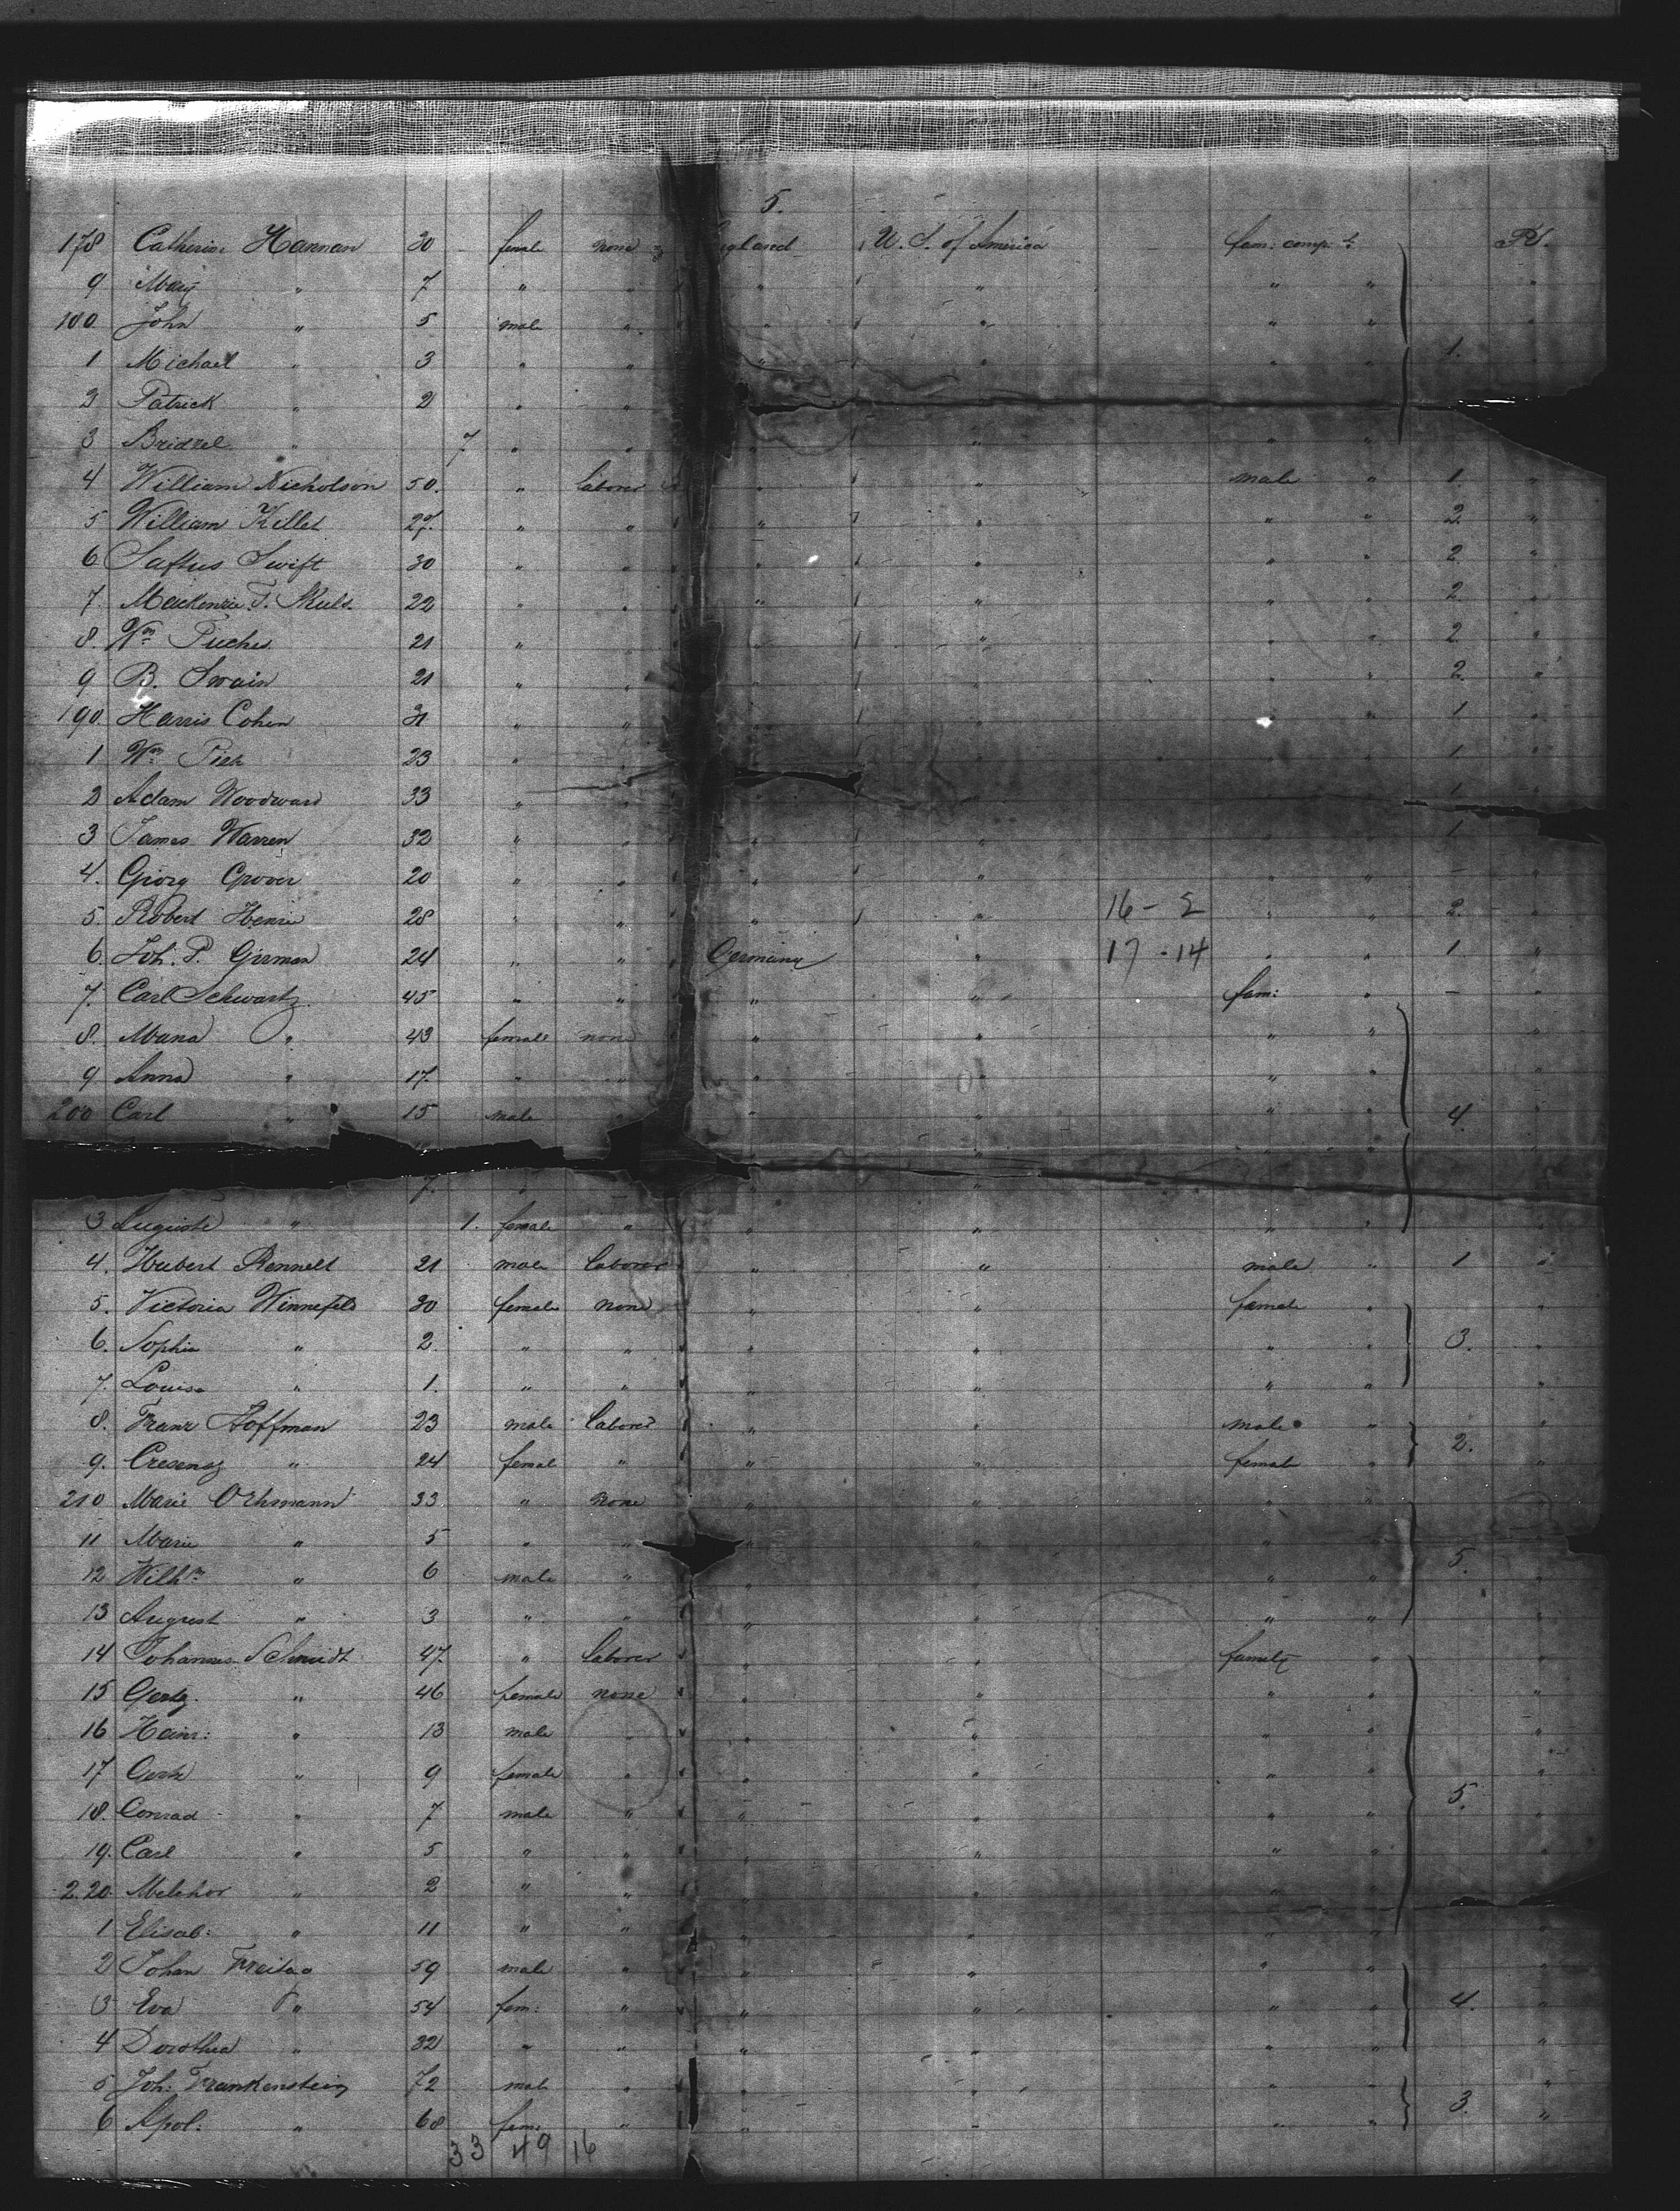 5.
178 Catherine Hannan 30 female none England U. S. of America fam: comp:t PS.
9 Mary " 7 " " " " " "
180 John " 5 male " " " " "
1 Michael " 3 " " " " " " 1.
2 Patrick " 2 " "
3 Bridzel " 7 " " " " " "
4 William Nicholson 50. " laborer " " male " 1. "
5 William Killet 27. " " " " " " 2. "
6 Swift 30 " " " " " " 2. "
7. Mackenzie 22 " " " " " " 2. "
8. Wm 21 " " " " " " 2 "
9 B. Swain 21 " " " " " " 2. "
190. Harris Cohen 31 " " " " " " 1 "
1 Wm 23 " " " " " " 1. "
2 Adam Woodward 33 " " " " " 1. "
3 James Warren 32 " " " " " " 1. "
4. Georg Grover 20 " " " " " " – "
5. Robert Henri 28 " " " " 16 – 2 " " 2. "
6. Joh. P. Girman 24 " " Germany " 17 - 14 " " 1. "
7. Carl Schwartz 45 " " " " fam: " – "
8. Maria " 43 female none " " " " "
9 Anna " 17. " " " " " " "
200 Carl " 15 male " " " " 4. "
7. " " " "
3 Auguste " 1. female " " " " " "
4. Hubert Rennelt 21 male laborer " " male " 1 "
5. Victoria Winnefeld 30 female none " " female " "
6. Sophia " 2. " " " " " " 3. "
7. Louise " 1. " " " " " " "
8. Franz Hoffman 23 male laborer " " male " "
9. Cresensz " 24 female " " " female " 2. "
210 Marie 33 " none " " " " "
11 Marie " 5 " " " " " " "
12 Wilhm " 6 male " " " " " 5. "
13 August " 3 " " " " " " "
14 Johannes Schmidt 47. " laborer " " family " "
15 " 46 female none " " " " "
16 Heinr: " 13 male " " " " " "
17 " 9 female " " " " " "
18. Conrad " 7 male " " " " " 5. "
19. Carl " 5 " " " " " " "
220. Melchor " 2 " " " " " "
1 Elisab: " 11 " " " " " " "
2 Johan Freitag 59 male " " " " " "
3 Eva " 54 fem: " " " " " 4. "
4 Dorothea " 32 " " " " " " "
5 Joh: Frankenstein 72 male " " " " " "
6 Apol: " 68 fem: " " " " " 3. "
33 49 16